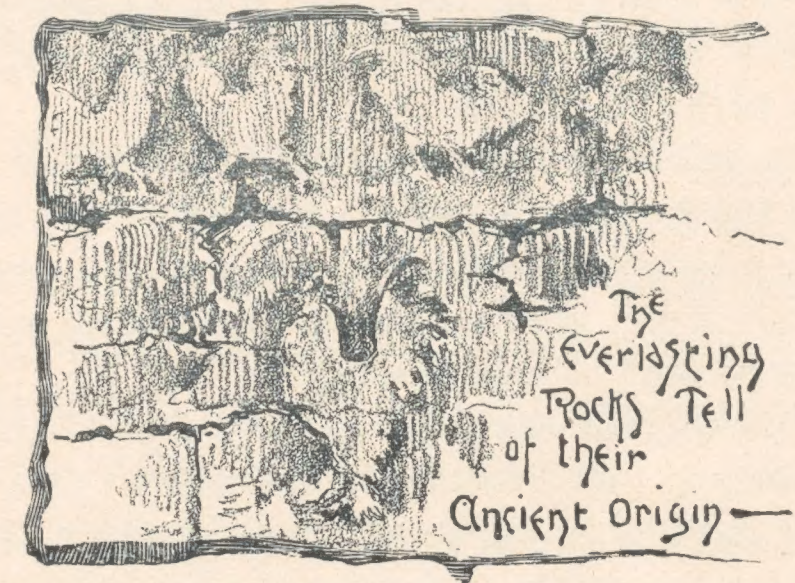 The
Everlasting
Rocks Tell
of their
Ancient Origin—